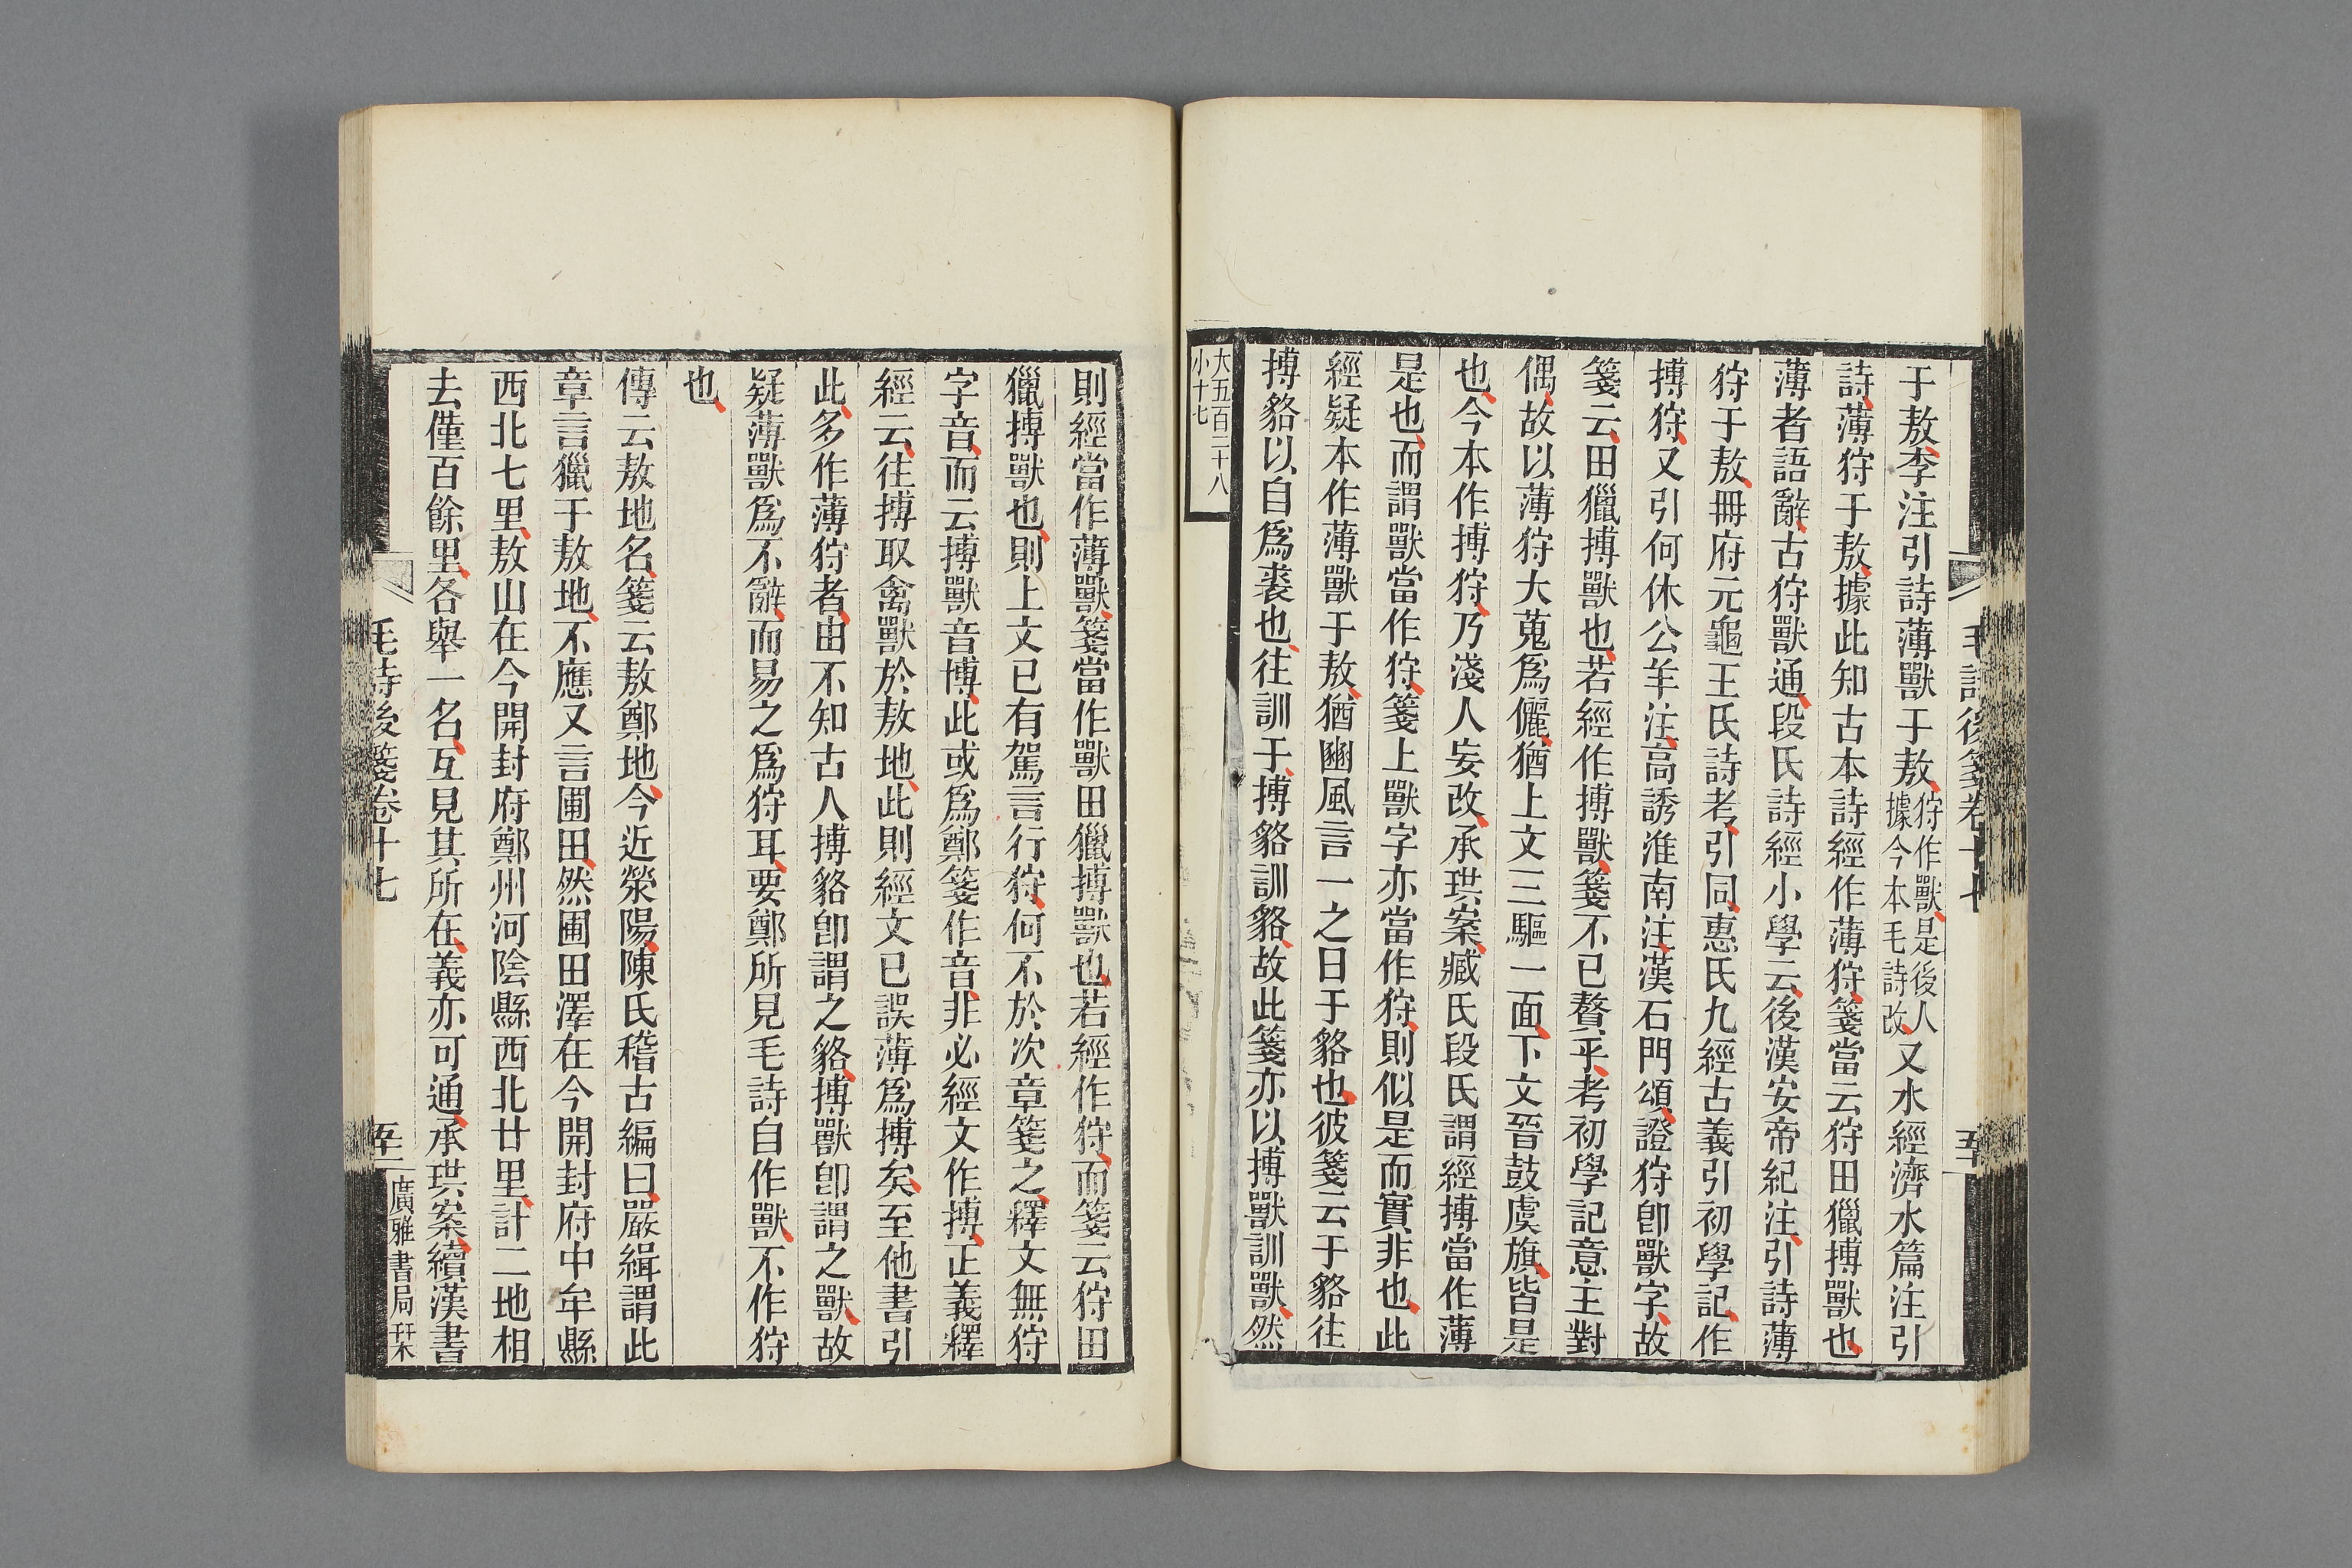 毛詩後箋卷十七
于敖李注引詩薄獸于敖狩作獸是後人據今本毛詩改又水經濟水篇注引
詩薄狩于敖據此知古本詩經作薄狩箋當云狩田獵搏獸也
薄者語辭古狩獸通段氏詩經小學云後漢安帝紀注引詩薄
狩于敖冊府元龜王氏詩考引同惠氏九經古義引初學記作
搏狩又引何休公羊注高誘淮南注漢石門頌證狩卽獸字故
箋云田獵搏獸也若經作搏獸箋不已贅乎考初學記意主對
偶故以薄狩大蒐爲儷猶上文三驅一面下文晉鼓虞旗皆是
也今本作搏狩乃淺人妄改承珙案臧氏段氏謂經搏當作薄
是也而謂獸當作狩箋上獸字亦當作狩則似是而實非也此
經疑本作薄獸于敖猶豳風言一之日于貉也彼箋云于貉往
搏貉以自爲裘也往訓于搏貉訓貉故此箋亦以搏獸訓獸然
大五百二十八
小十七
則經當作薄獸箋當作獸田獵搏獸也若經作狩而箋云狩田
獵搏獸也則上文已有駕言行狩何不於次章箋之釋文無狩
字音而云搏獸音博此或爲鄭箋作音非必經文作搏正義釋
經云往搏取禽獸於敖地此則經文已誤薄爲搏矣至他書引
此多作薄狩者由不知古人搏貉卽謂之貉搏獸卽謂之獸故
疑薄獸爲不辭而易之爲狩耳要鄭所見毛詩自作獸不作狩
也
傳云敖地名箋云敖鄭地今近滎陽陳氏稽古編曰嚴緝謂此
章言獵于敖地不應又言圃田然圃田澤在今開封府中牟縣
西北七里敖山在今開封府鄭州河陰縣西北廿里計二地相
去僅百餘里各舉一名互見其所在義亦可通承珙案續漢書
毛詩後箋卷十七
廣雅書局栞